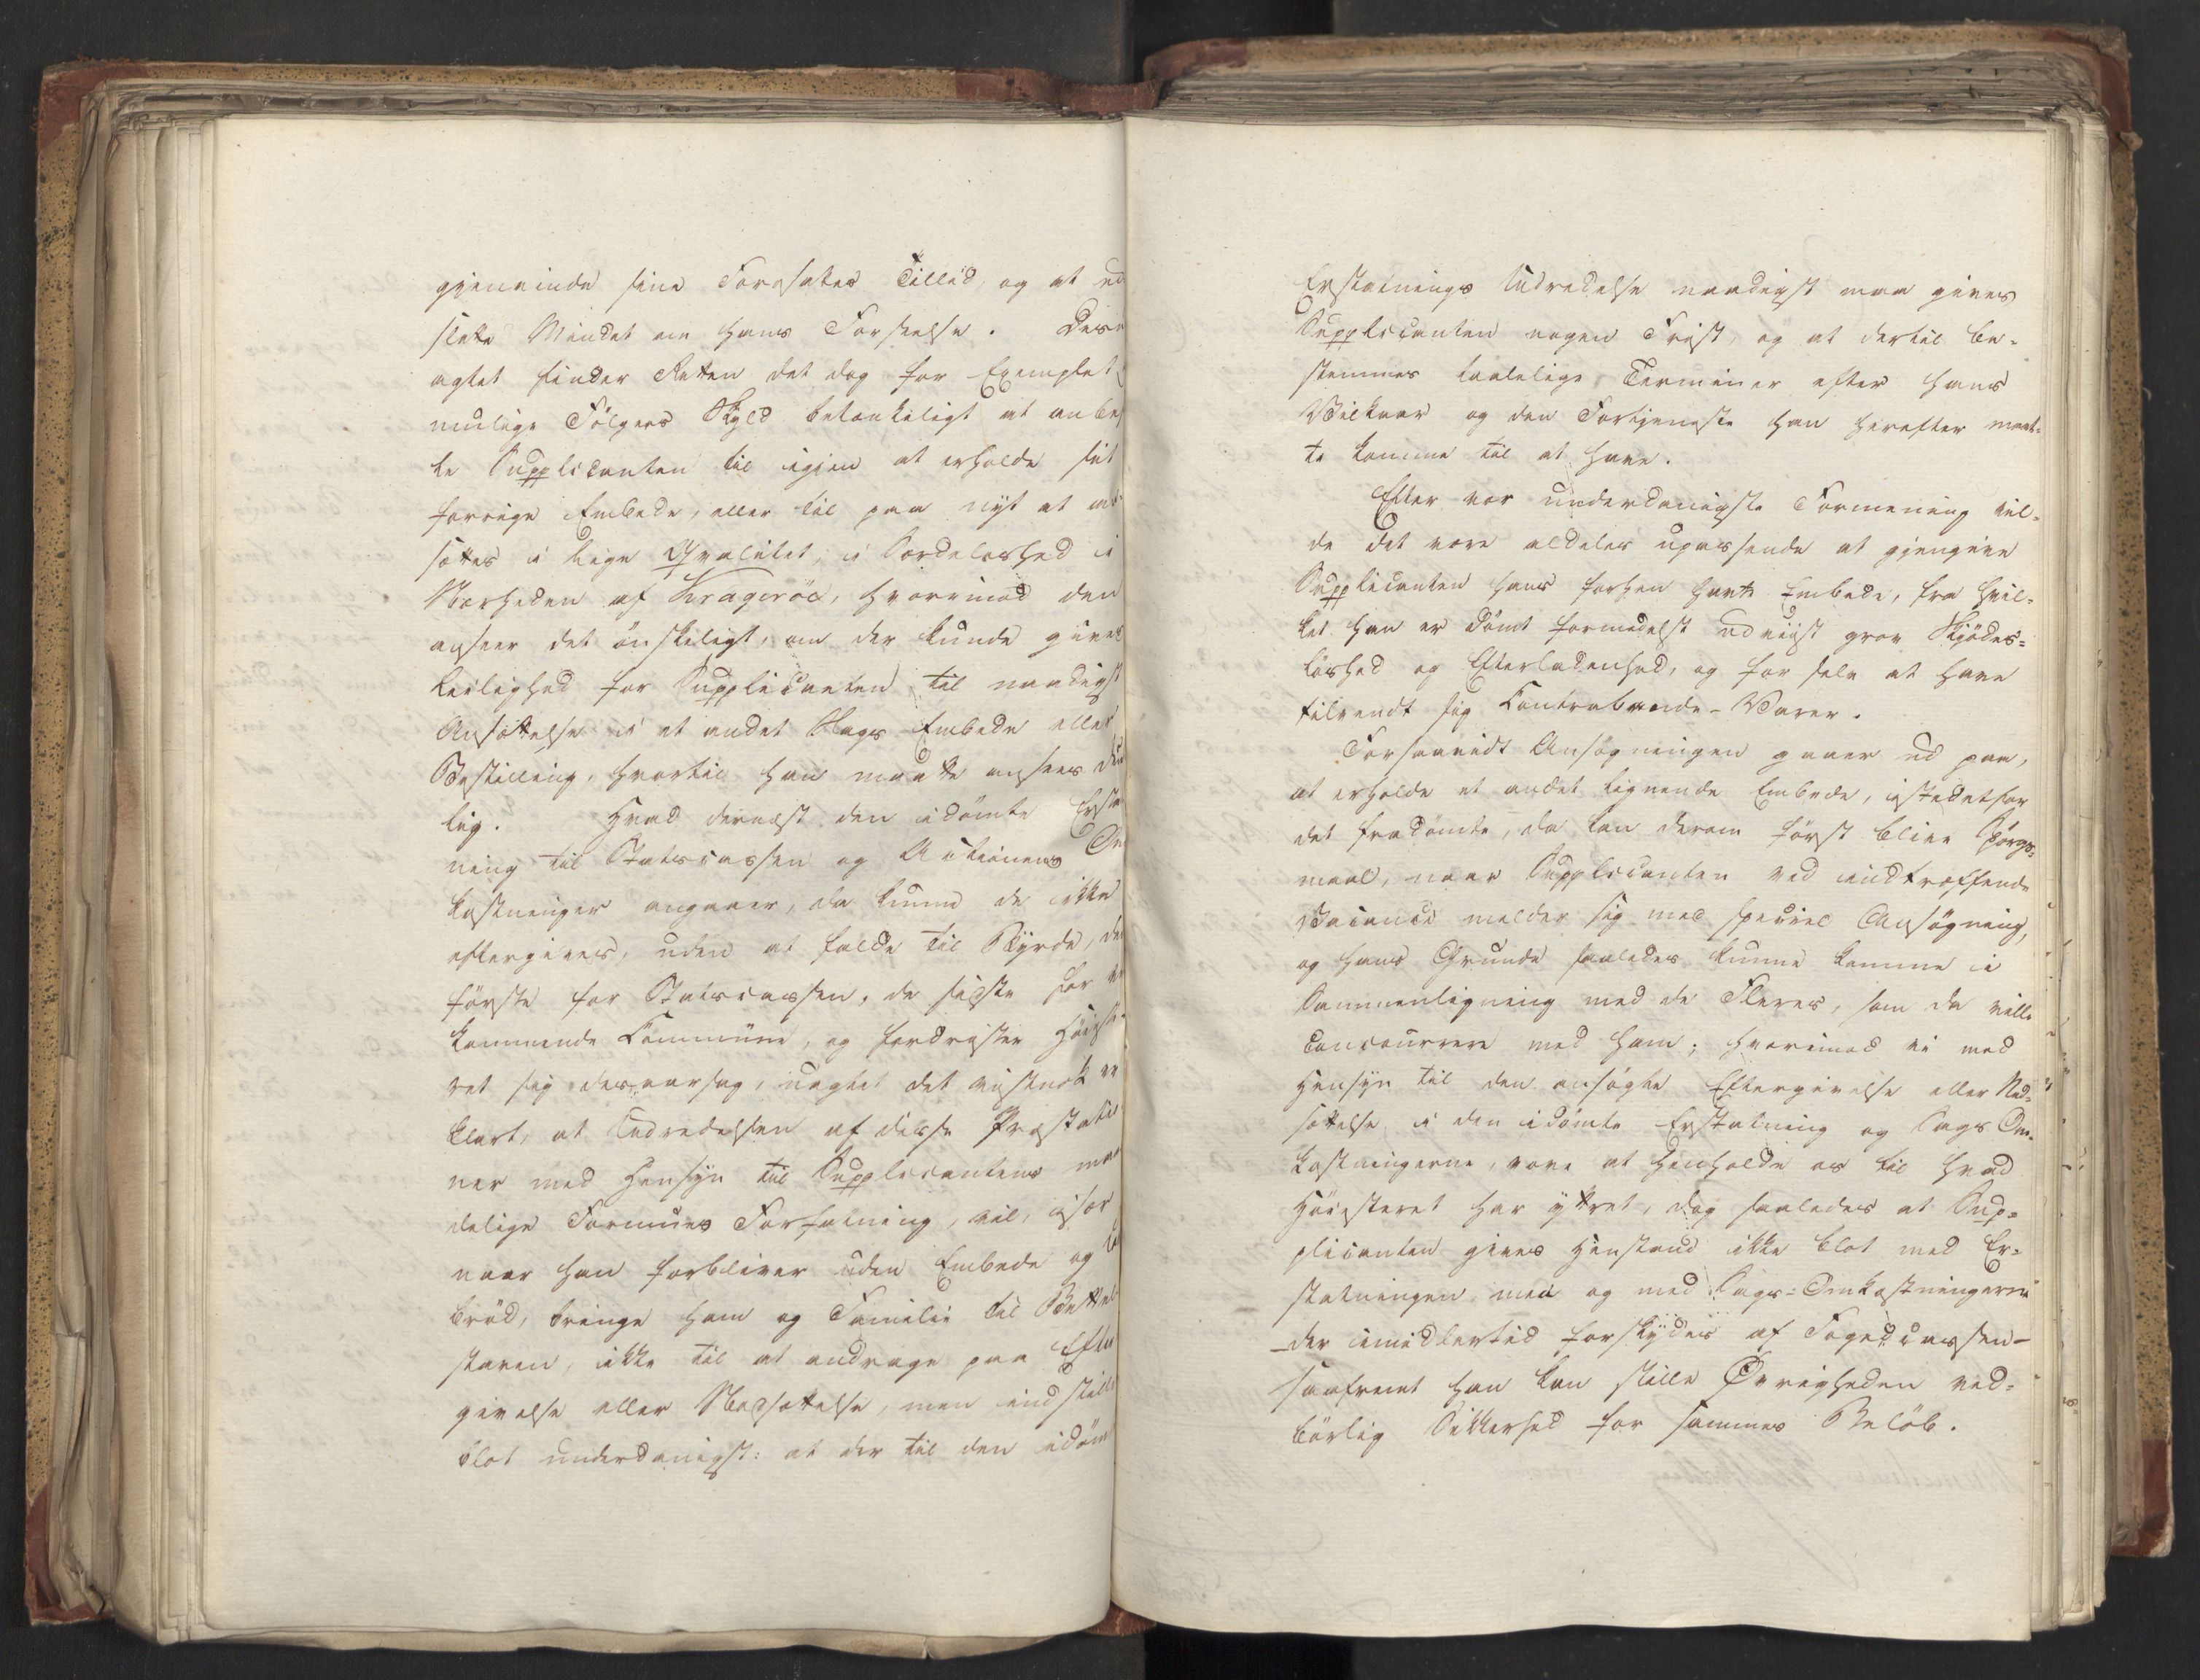 gjenvinde sine Foresattes Tillid, og at ud
slette Mindet om hans Forseelse. Desu
agtet finder Retten det dog for Exemplets
mulige Følgers Skyld betænkeligt at anbe
le Supplicanten til igjen at erholde sit
forrige Embede, eller til paa nyt at an¬
sættes i lige Qvalitet, i Særdeleshed i
Nærheden af Kragerøe, hvorimod den
anseer det ønskeligt, om der kunde gives
Leilighed for Supplicanten til naadigst
Ansættelse i et andet Slags Embede eller
Bestilling, hvortil han maatte ansees du
lig. Hvad dernæst den idømte Ersta
ning til Statscassen og Actionens Om
kostninger angaaer, da kunne de ikke
eftergives, uden at falde til Byrde, det
første for Statscassen, de sidste for ved
kommende Commune, og fordrister Høieste¬
ret sig desaarsag, uagtet det vistnok er
klart, at Udredelsen af disse Præstatio
ner med Hensyn til Supplicantens maa
delige Formues Forfatning, vil, især
naar han forbliver uden Embede og Le
brød, bringe ham og Familie til Bettel
staven, ikke til at andrage paa Efter
givelse eller Nedsættelse, men indstille
blot underdanigst: at der til den idømt
Erstatnings Udredelse naadigst maa gives
Supplicanten nogen Frist, og at dertil be¬
stemmes taalelige Terminer efter hans
Vilkaar og den Fortjeneste han herefter maat¬
te komme til at have.
Efter vor underdanigste Formening vil¬
de det være aldeles upassende at gjengive
Supplicanten hans forhen havte Embede, fra hvil¬
ket han er dømt formedelst udviist grov Skjødes¬
løshed og Efterladenhed, og for selv at have
tilvendt sig Contrabande-Varer.
Forsaavidt Ansøgningen gaaer ud paa,
at erholde et andet lignende Embede, istedetfor
det fradømte, da kan derom først blive Spørgs¬
maal, naar Supplicanten ved indtræffende
Vacance melder sig med speciel Ansøgning,
og hans Grunde saaledes kunne komme i
Sammenligning med de Fleres, som da ville
concourrere med ham; hvorimod vi med
Hensyn til den ansøgte Eftergivelse eller Ned¬
sættelse i den idømte Erstatning og Sags Om¬
kostningerne, vove at henholde os til hvad
Høiesteret har yttret, dog saaledes at Sup¬
plicanten gives Henstand ikke blot med Er¬
statningen, men og med Sags-Omkostningerne
– der imidlertid forskydes af Fogedcassen –
saafremt han kan stille Øvrigheden ved¬
børlig Sikkerhed for sammes Beløb.